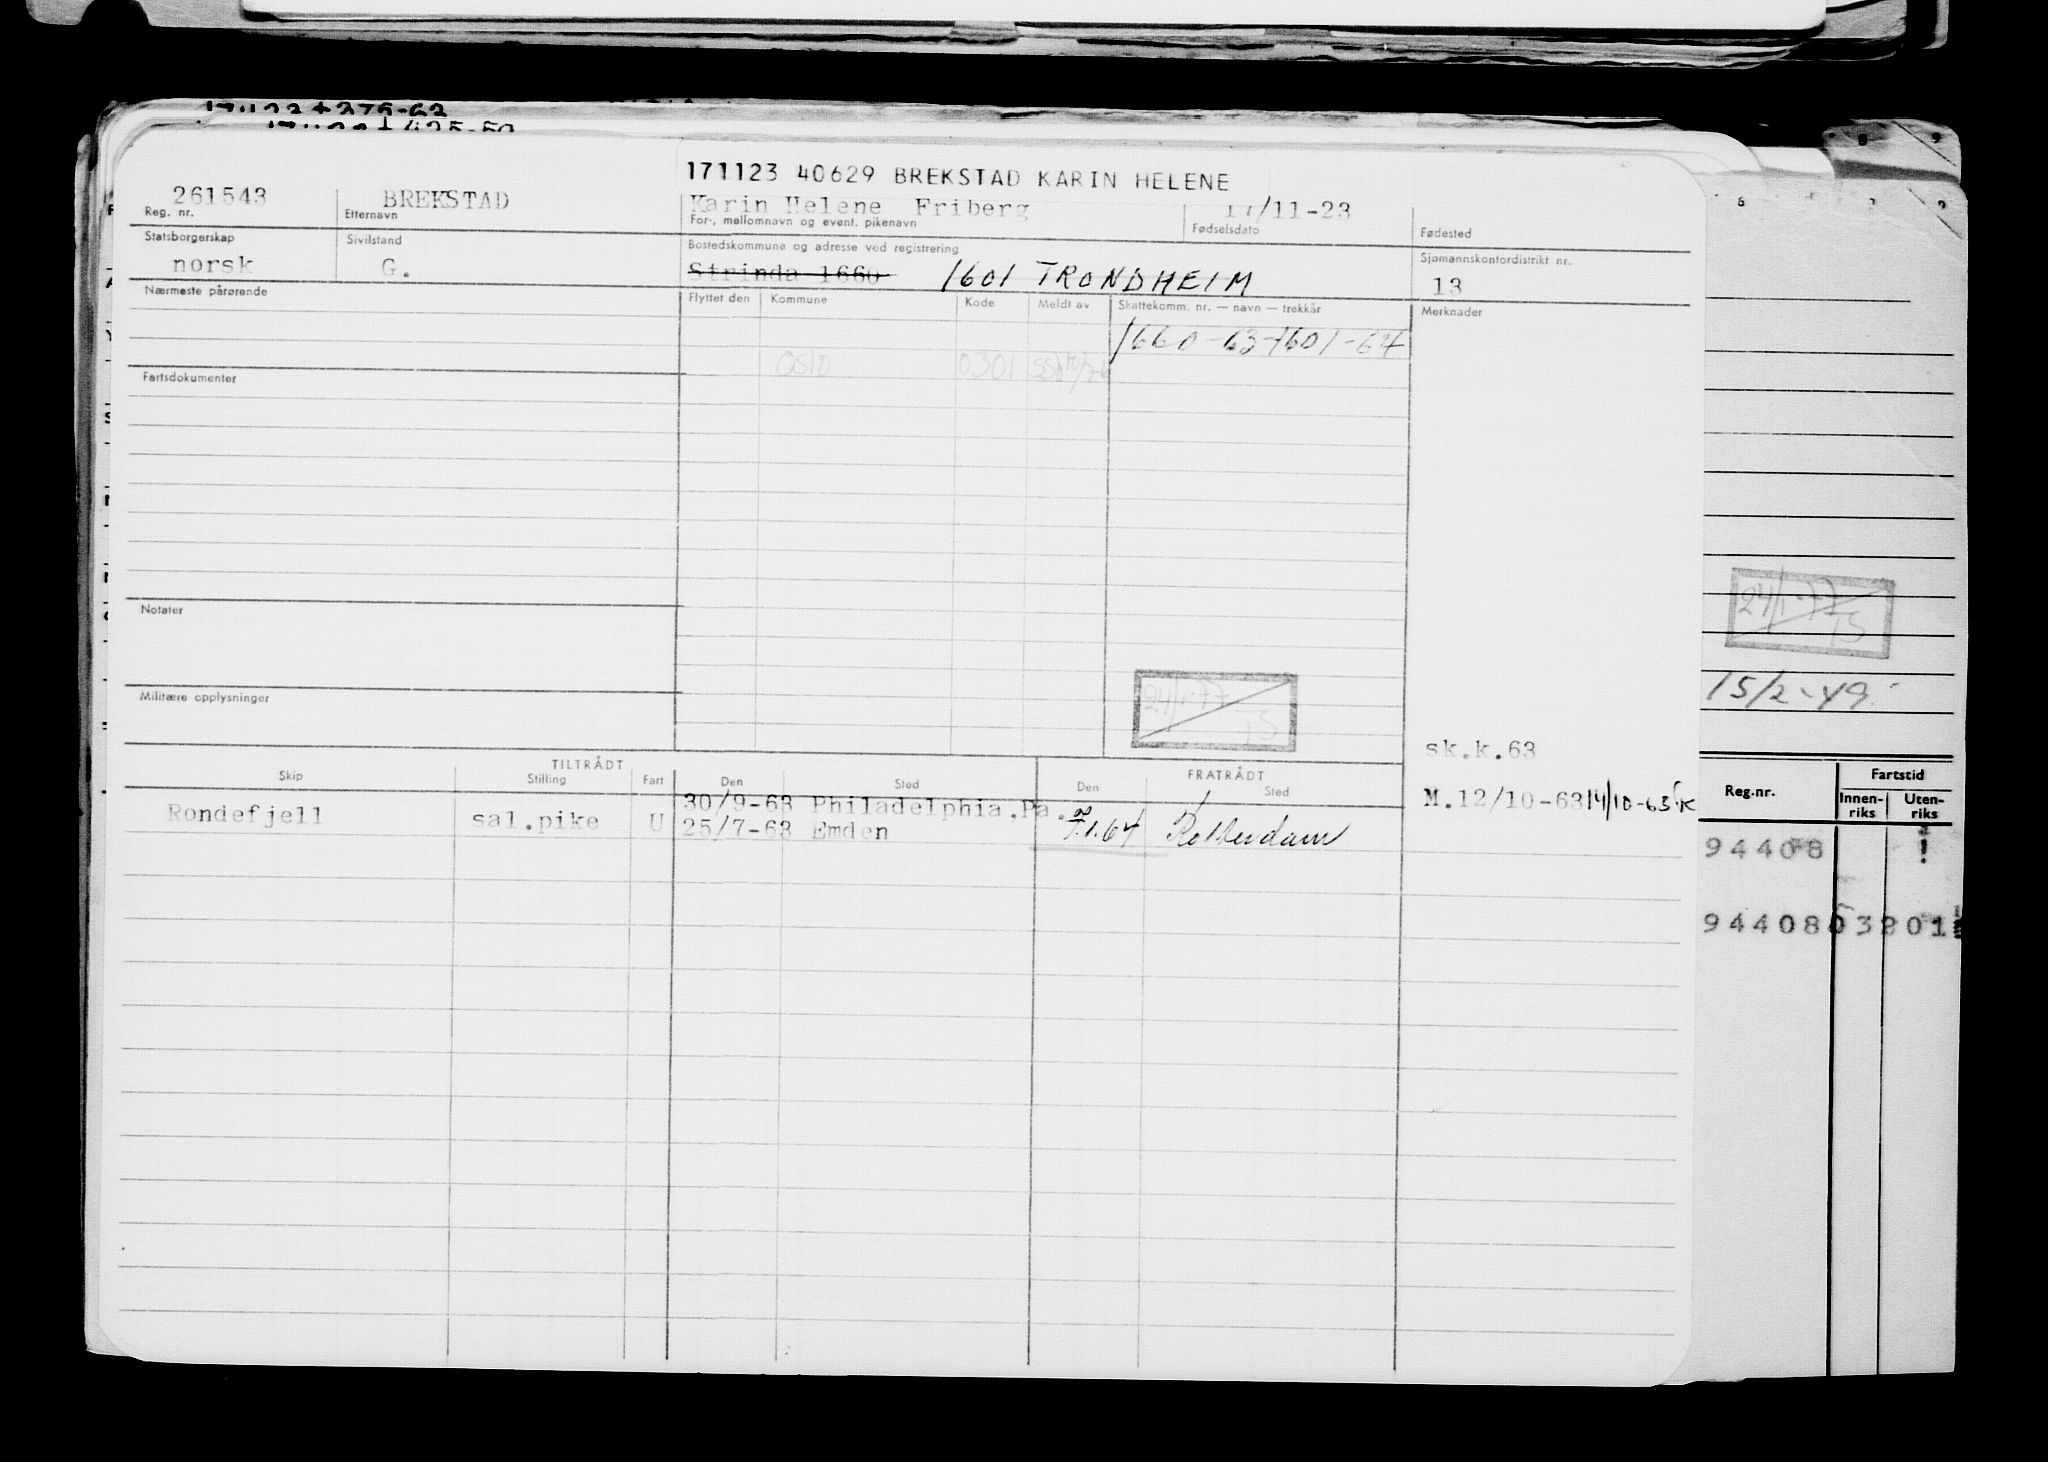 171123 40629 BREKSTAD KARIN HELENE
261543 BREKSTAD Karin Helene Friberg 17/11-23
Reg. nr. Etternavn For-, mellomnavn og event. pikenavn Fødselsdato Fødested
Statsborgerskap Sivilstand Bostedskommune og adresse ved registrering Sjømannskontordistrikt nr.
norsk G. Strinda 1660 1601 TRONDHEIM 13
Nærmeste pårørende Flyttet den Kommune Kode Meldt av Skattekomm. nr. — navn — trekkår Merknader
1660-63-1601-64
Oslo 0301
Fartsdokumenter
Notater
24/1-77
TS
Militære opplysninger
sk.k.63
TILTRÅDT FRATRÅDT
Skip Stilling Fart Den Sted Den Sted
30/9-63 Philadelphia.Pa. M.12/10-63 14/10-63
Rondefjell sal.pike U 25/7-63 Emden 7.1.64 Rotterdam
24/1-77
TS
15/2-49
Reg.nr. Fartstid
Innen-riks Uten-riks
94408
94408